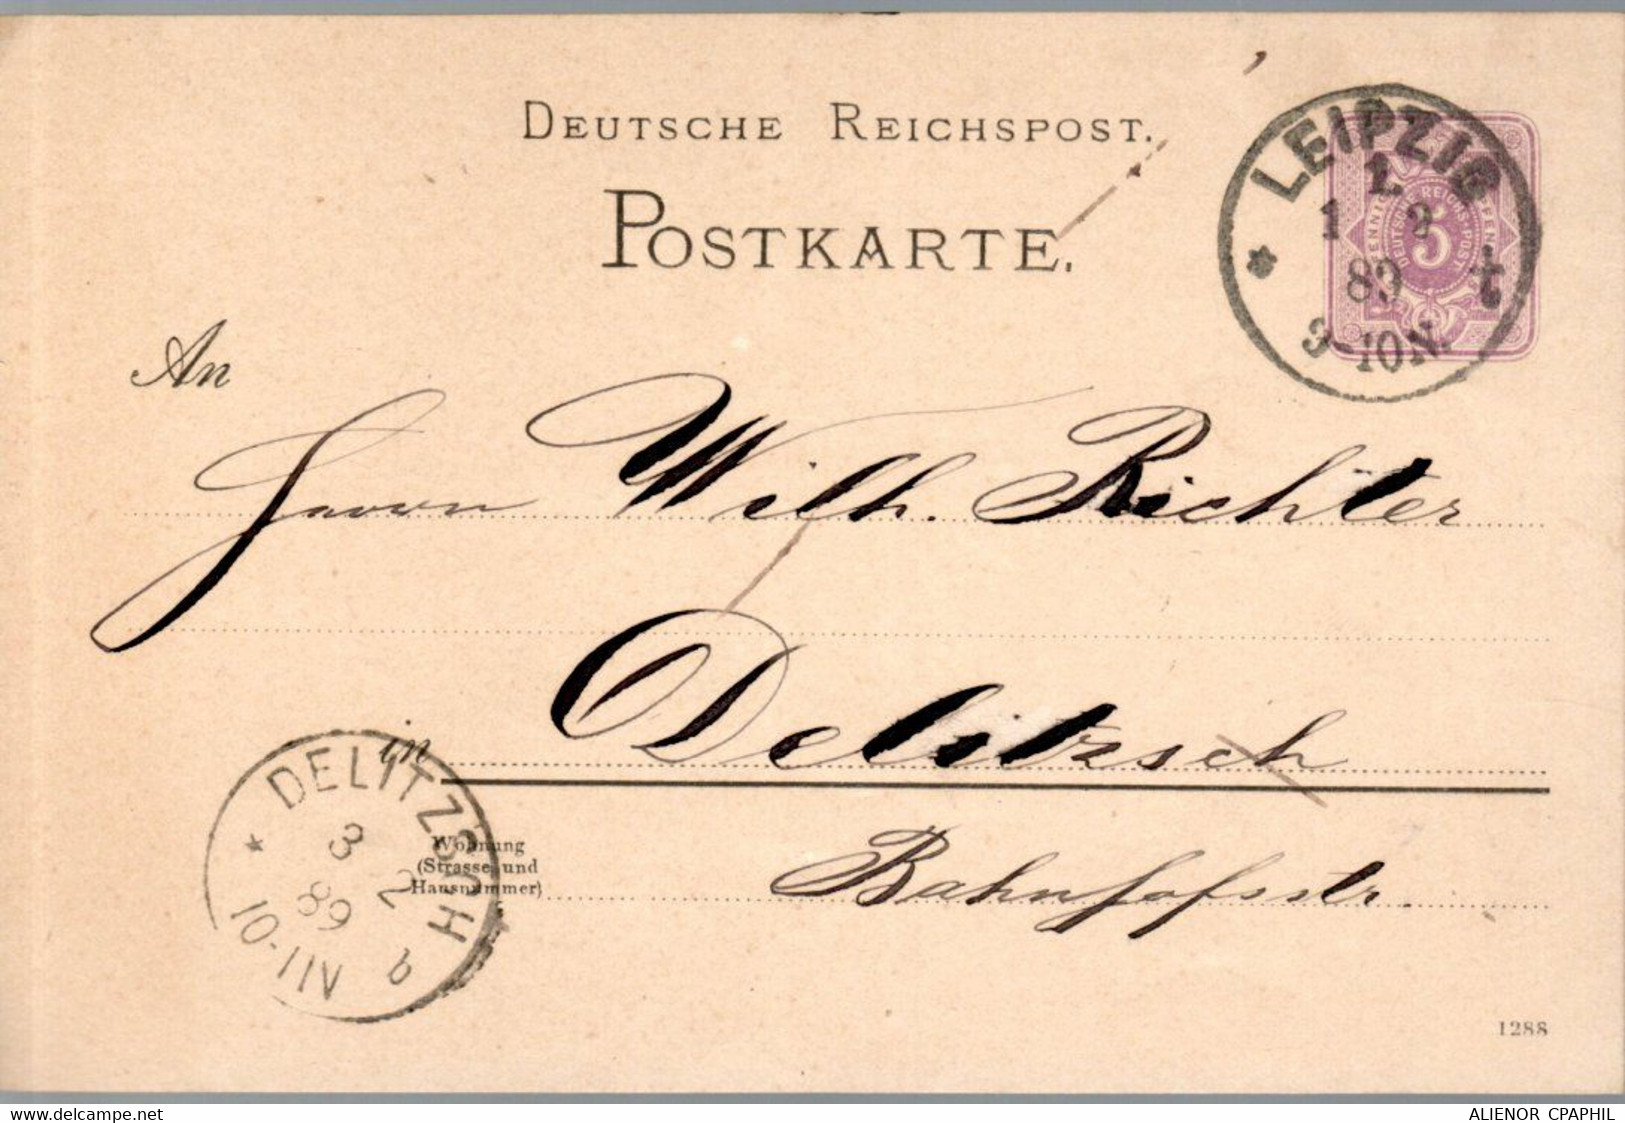 DEUTSCHE REICHSPOST.
POSTKARTE.
LEIPZIG
1.
1 2
89
9-10N.
t
PFENNIG
DEUTSCHE REICHS-POST
5
An
Herrn Wilh. Richter
in Delitzsch
Wohnung
(Strasse und
Hausnummer)
Bahnhofsstr.
DELITZSCH
3 2
89
10-11V
b
1288
www.delcampe.net
ALIENOR CPAPHIL